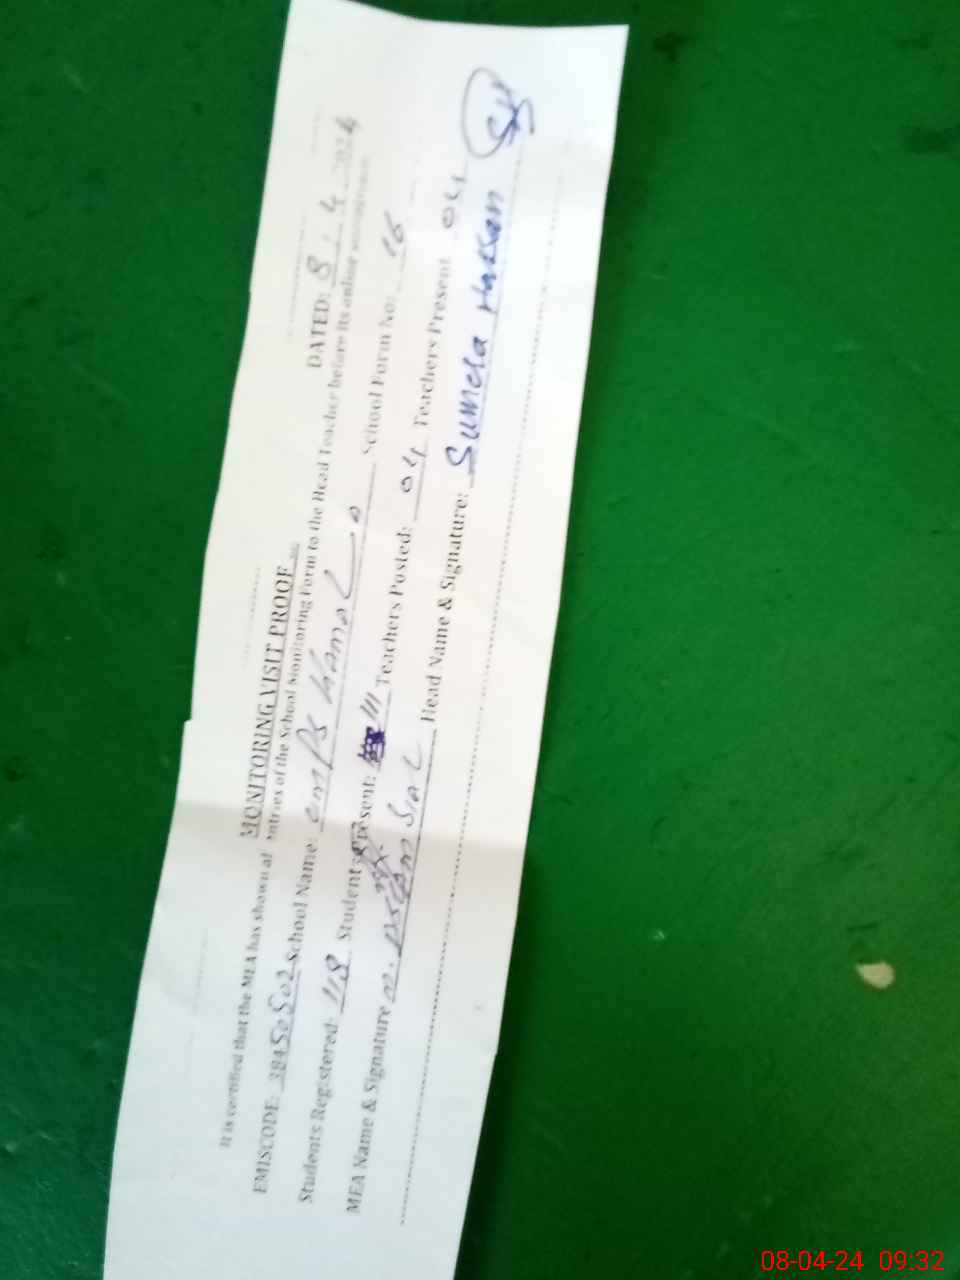 MONITORING VISIT PROOF
DATED: 8 . 4 2024
It is certified that the MEA has shown al entries of the School Monitoring Form to the Head Teacher before its online
EMISCODE: 38450502 School Name: GMPS School Form No: 16
Students Registered: 118 Students Present: 111 Teachers Posted: 04 Teachers Present 04
MEA Name & Signature Head Name & Signature: Sumera Hassan
08-04-24 09:32